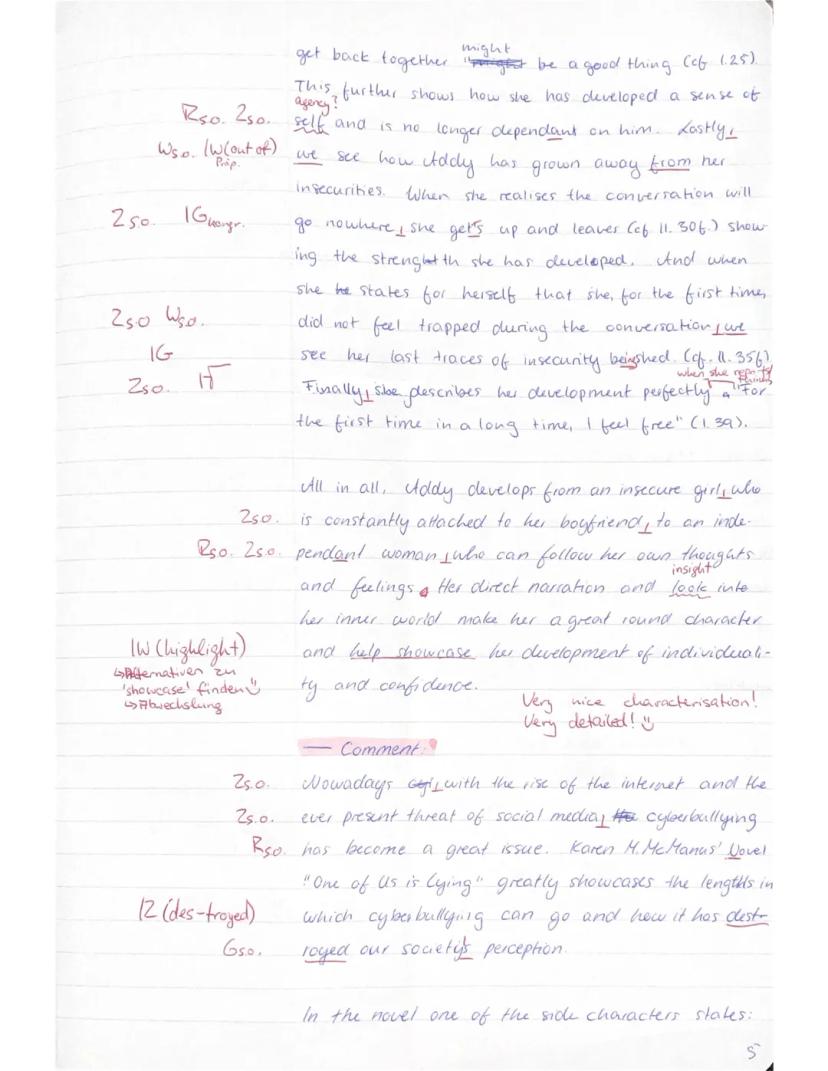 might
get back together "might" be a good thing (cf l.25).
This further shows how she has developed a sense of
agency?
Rs.o. Zs.o. self and is no longer dependant on him. Lastly,
Ws.o. 1W (out of) we see how Addy has grown away from her
Präp.
insecurities. When she realises the conversation will
Zs.o. 1G kongr. go nowhere, she get's up and leaves (cf ll. 30f.) show-
ing the strength she has developed. And when
she he states for herself that she, for the first time,
Zs.o Ws.o. did not feel trapped during the conversation, we
1G see her last traces of insecurity being shed. (cf. ll. 35f)
when she
Zs.o. 1 Finally, she describes her development perfectly "For
the first time in a long time, I feel free" (l.39).
All in all, Addy develops from an insecure girl, who
Zs.o. is constantly attached to her boyfriend, to an inde-
Rs.o. Zs.o. pendant woman, who can follow her own thoughts
insight
and feelings. Her direct narration and look into
her inner world make her a great round character
1W (highlight) and help showcase her development of individuali-
↳Alternativen zu
'showcase' finden ☺ ty and confidence.
↳Abwechslung
Very nice characterisation!
Very detailed! ☺
— Comment:
Zs.o. Nowadays, with the rise of the internet and the
Zs.o. ever present threat of social media, the cyberbullying
Rs.o. has become a great issue. Karen M. McManus' Novel
"One of Us is Lying" greatly showcases the lengths in
1Z (des-troyed) which cyberbullying can go and how it has dest-
Gs.o. royed our society's perception.
In the novel one of the side characters states:
5